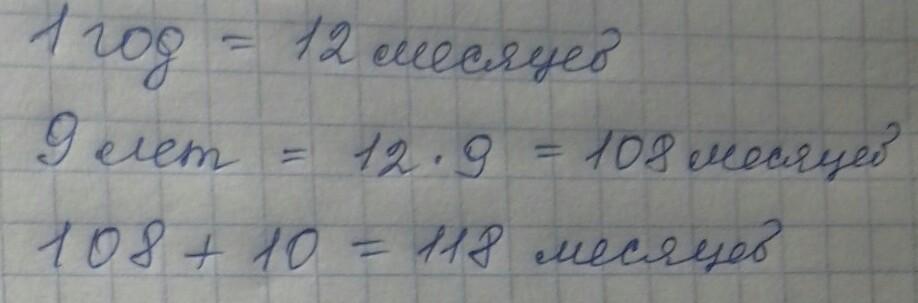 1 год = 12 месяцев
9 лет = 12 · 9 = 108 месяцев
108 + 10 = 118 месяцев